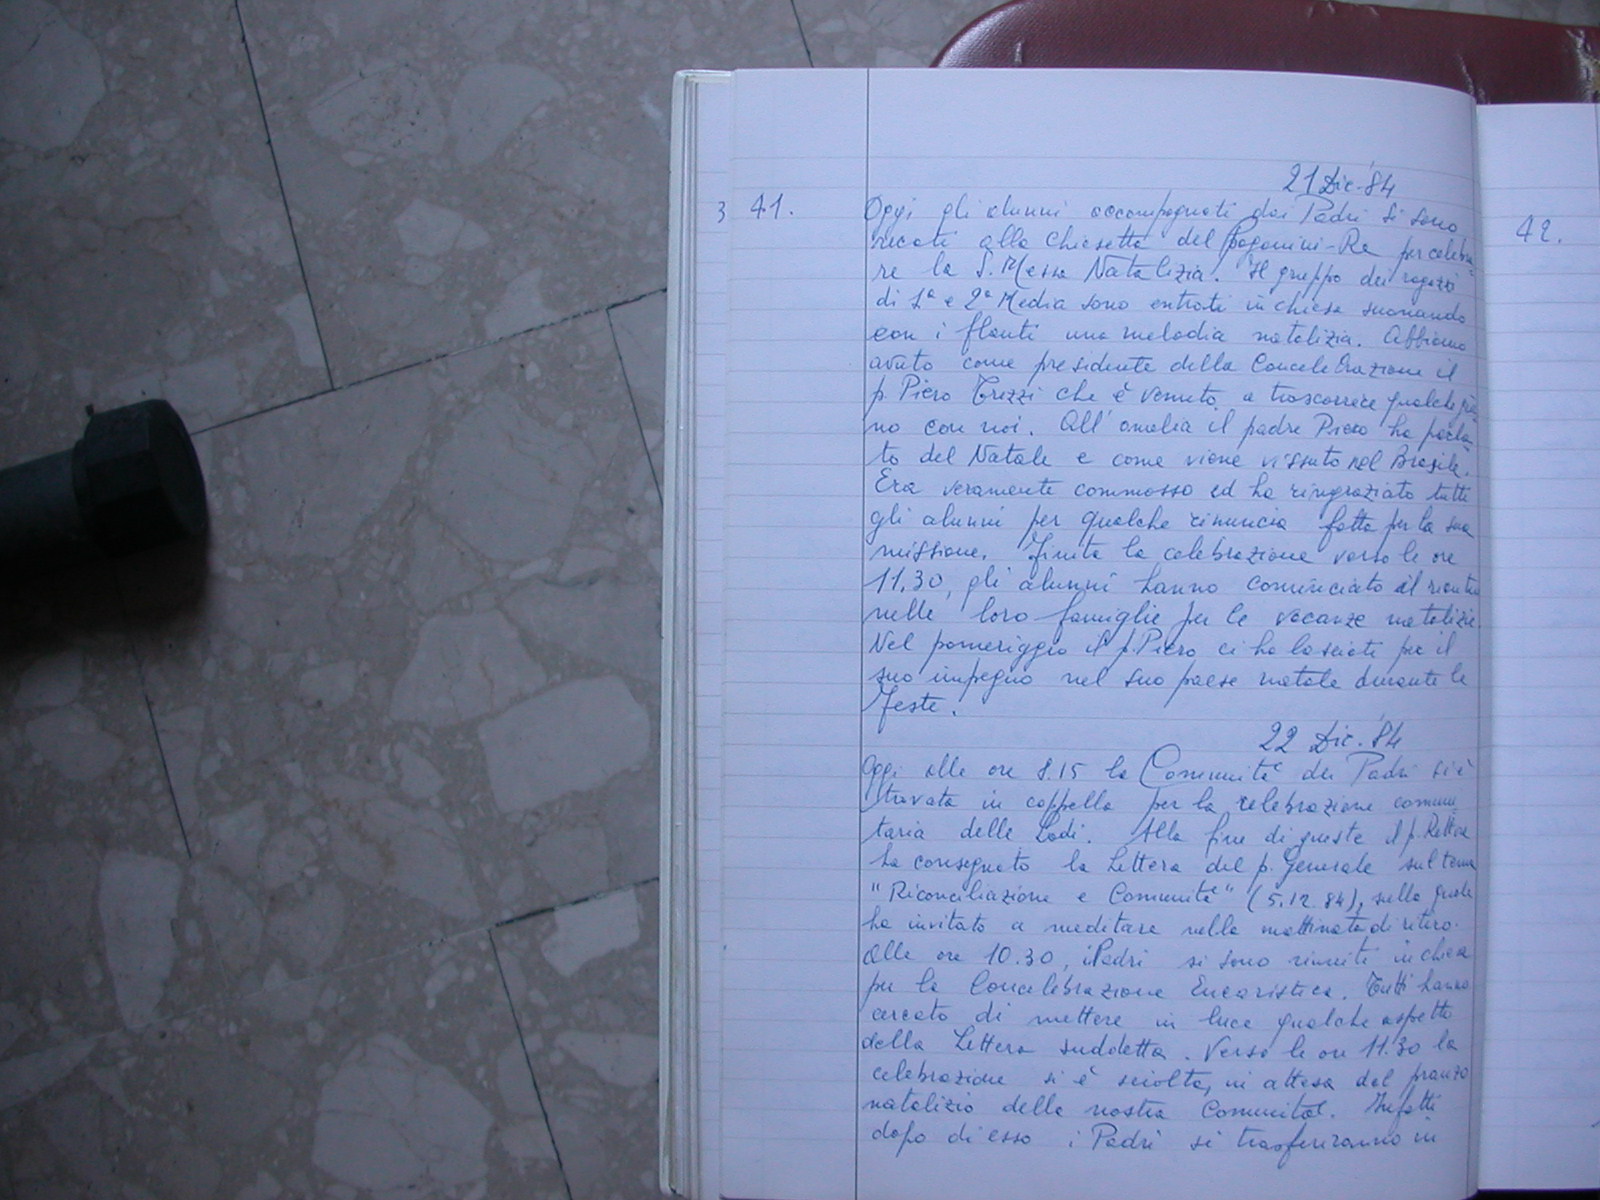 21 Dic. '84
3 41. Oggi gli alunni accompagnati dai Padri si sono
recati alla chiesetta del Paganini-Re per celebra-
re la S. Messa Natalizia. Il gruppo dei ragazzi
di 1ª e 2ª Media sono entrati in chiesa suonando
con i flauti una melodia natalizia. Abbiamo
avuto come presidente della Concelebrazione il
p. Piero Trezzi che è venuto a trascorrere qualche gior
no con noi. All'omelia il padre Piero ha parla-
to del Natale e come viene vissuto nel Brasile.
Era veramente commosso ed ha ringraziato tutti
gli alunni per qualche rinuncia fatta per la sua
missione. Finita la celebrazione verso le ore
11.30, gli alunni hanno cominciato il rientro
nelle loro famiglie per le vacanze natalizie.
Nel pomeriggio il p. Piero ci ha lasciati per il
suo impegno nel suo paese natale durante le
feste.
22 Dic. '84
Oggi alle ore 8.15 la Comunità dei Padri si è
trovata in cappella per la celebrazione comuni
taria delle Lodi. Alla fine di queste il p. Rettore
ha consegnato la Lettera del p. Generale sul tema
"Riconciliazione e Comunità" (5.12.84), sulla quale
ha invitato a meditare nella mattinata di ritiro.
Alle ore 10.30, i Padri si sono riuniti in chiesa
per la Concelebrazione Eucaristica. Tutti hanno
cercato di mettere in luce qualche aspetto
della Lettera suddetta. Verso le ore 11.30 la
celebrazione si è sciolta, in attesa del pranzo
natalizio della nostra Comunità. Infatti
dopo di esso i Padri si trasferiranno in
42.